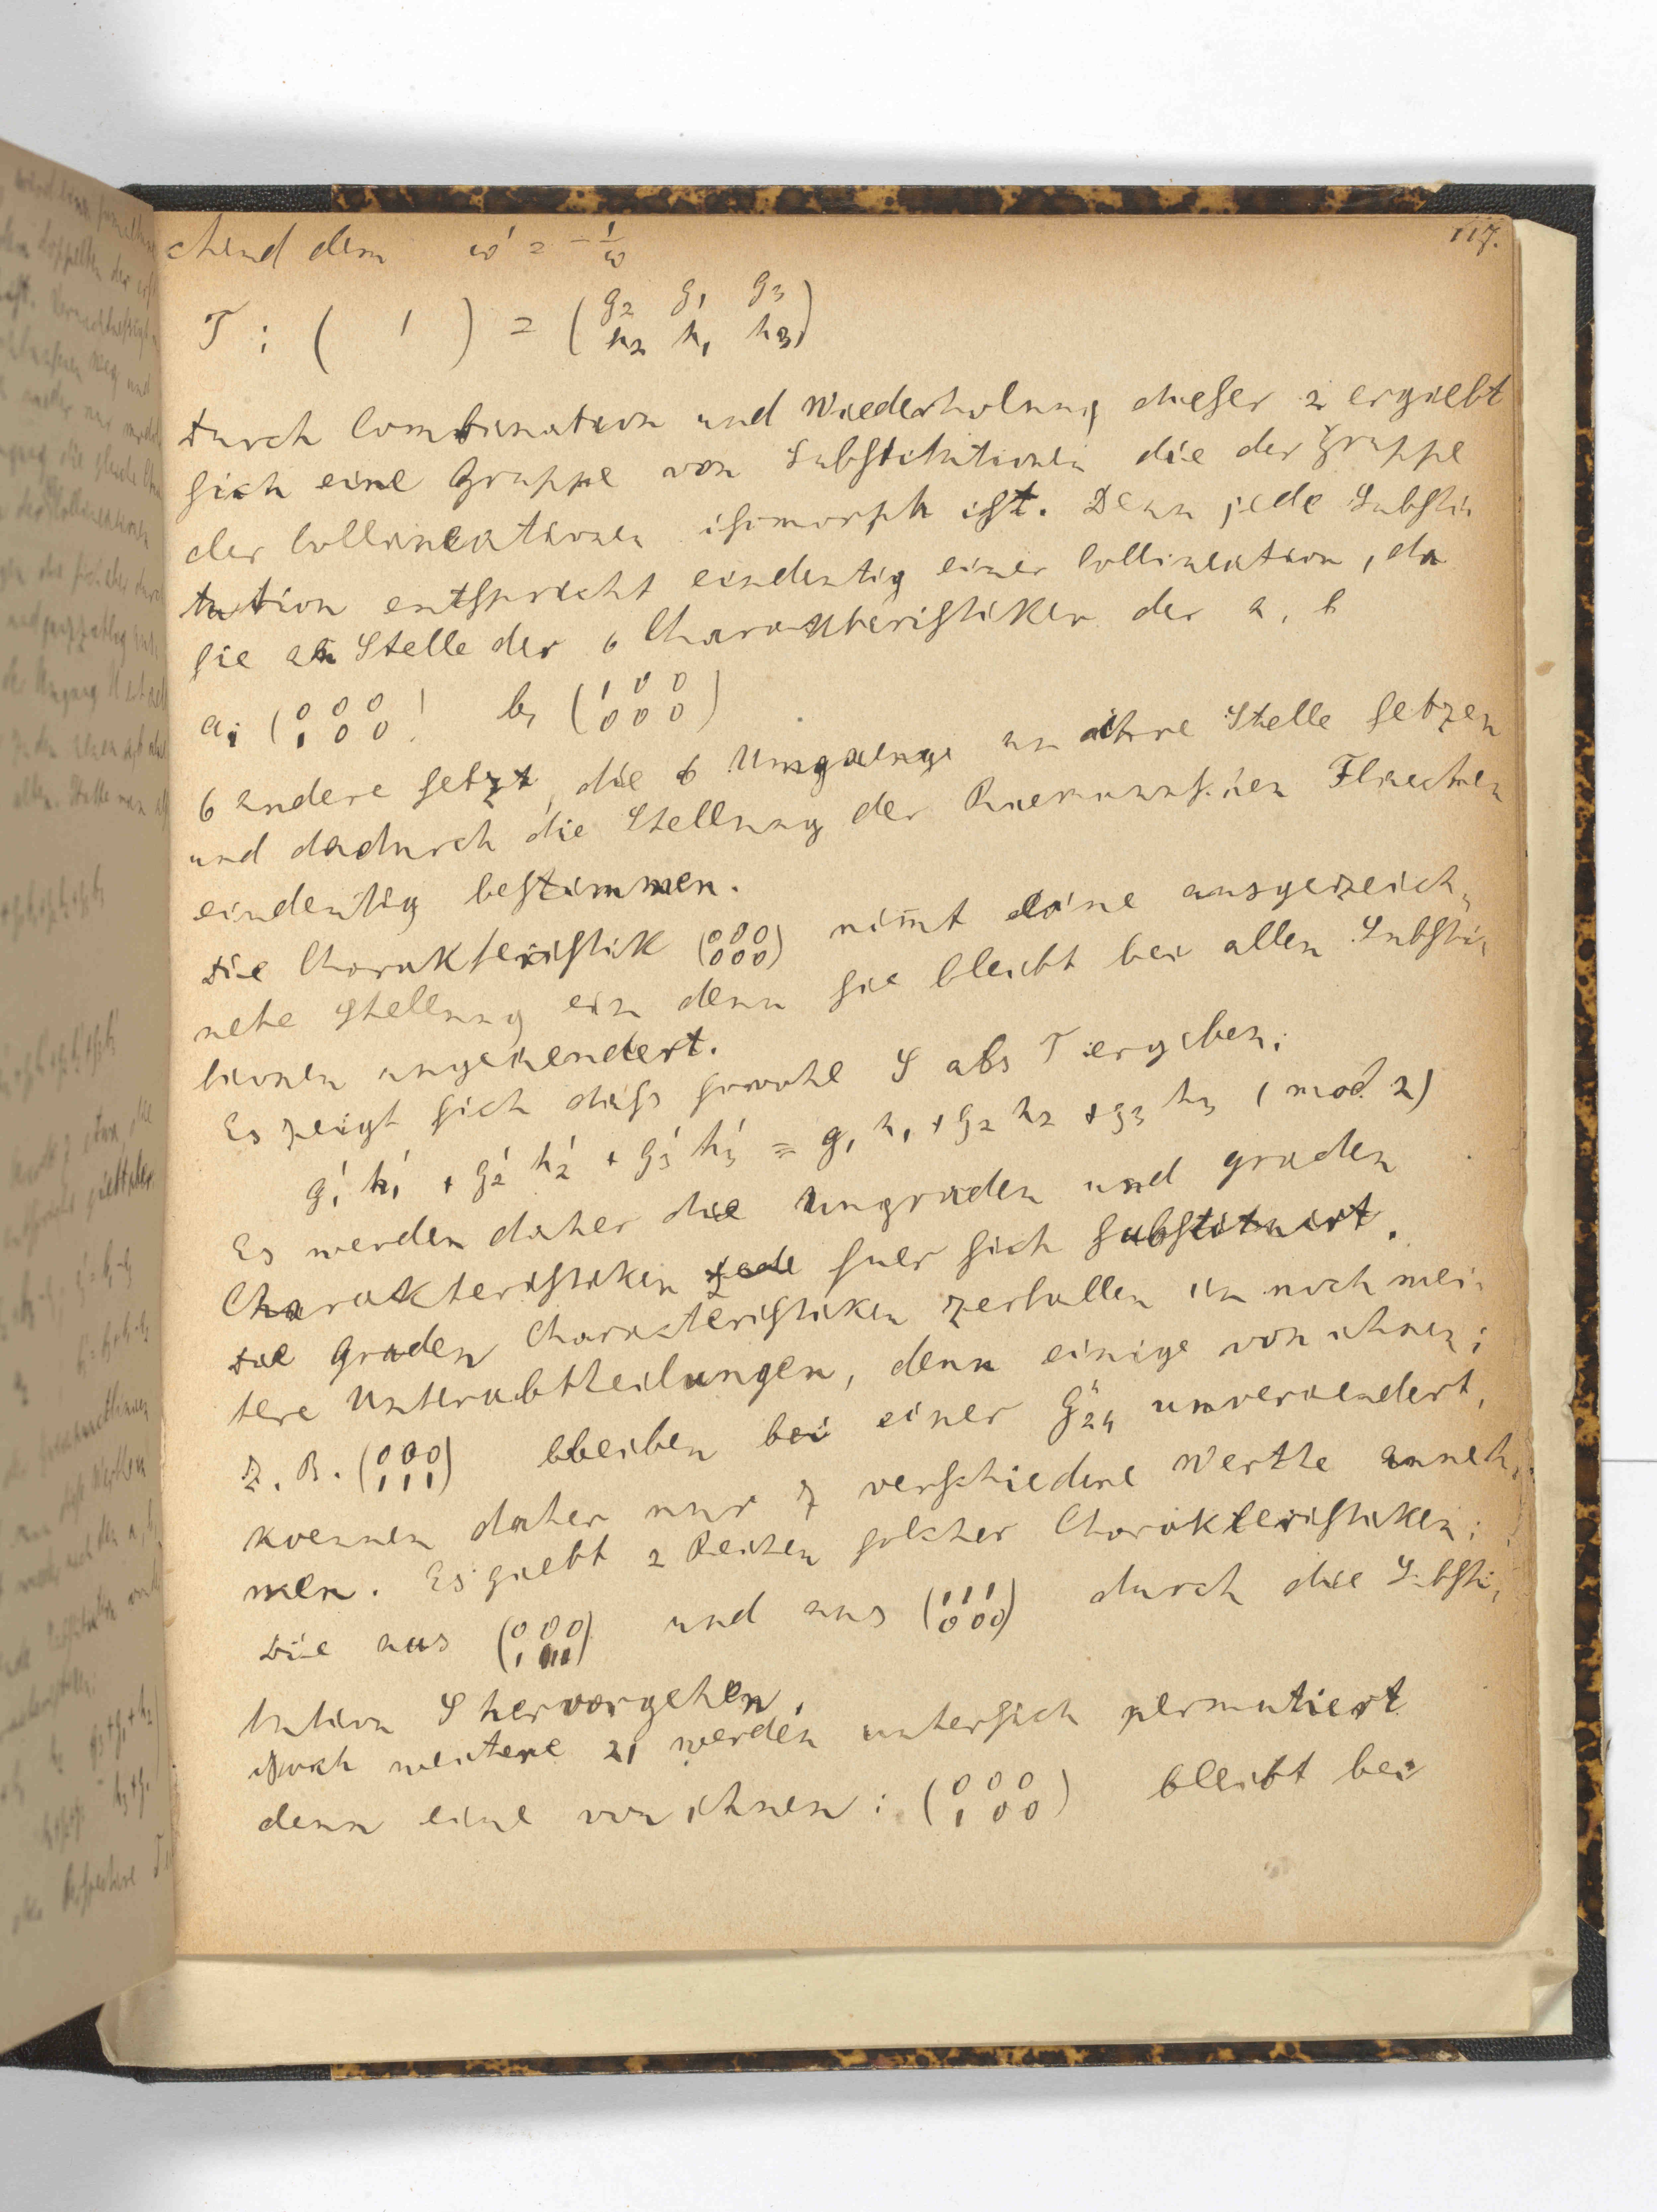 117.
chend dem ω' = -1/ω
T : ( ' ) = (g2 g1 g3 / h2 h1 h3)
Durch Combination und Wiederholung dieser 2 ergiebt
sich eine Gruppe von Substitutionen die der Gruppe
der Collineationen isomorph ist. Denn jede Substi-
tution entspricht eindeutig einer Collineation, da
sie an Stelle der 6 Charakteristiken der a, b
a1 (0 0 0 / 1 0 0) b1 (1 0 0 / 0 0 0)
6 andere setzt, die 6 Umgaenge an ihre Stelle setzen
und dadurch die Stellung der Riemannschen Flaechen
eindeutig bestimmen.
Die Charakteristik (000 / 000) nim̄t eine ausgezeich-
nete Stellung ein denn sie bleibt bei allen Substi-
tionen ungeaendert.
Es zeigt sich dass sowohl S als T ergeben:
g1' h1' + g2' h2' + g3' h3' ≡ g1 h1 + g2 h2 + g3 h3 (mod. 2)
Es werden daher die Ungraden und graden
Charakteristiken jede fuer sich substituirt.
Die Graden Charakteristiken zerfallen in noch wei-
tere Unterabtheilungen, denn einige von ihnen:
z. B. (000 / 111) bleiben bei einer G24" unveraendert,
koennen daher nur 7 verschiedene Werthe anneh-
men. Es giebt 2 Reihen solcher Charakteristiken:
Die aus (000 / 111) und aus (111 / 000) durch die Substi-
tution S hervorgehen.
Noch weitere 21 werden untersich permutiert
denn eine von ihnen: (0 0 0 / 1 0 0) bleibt bei